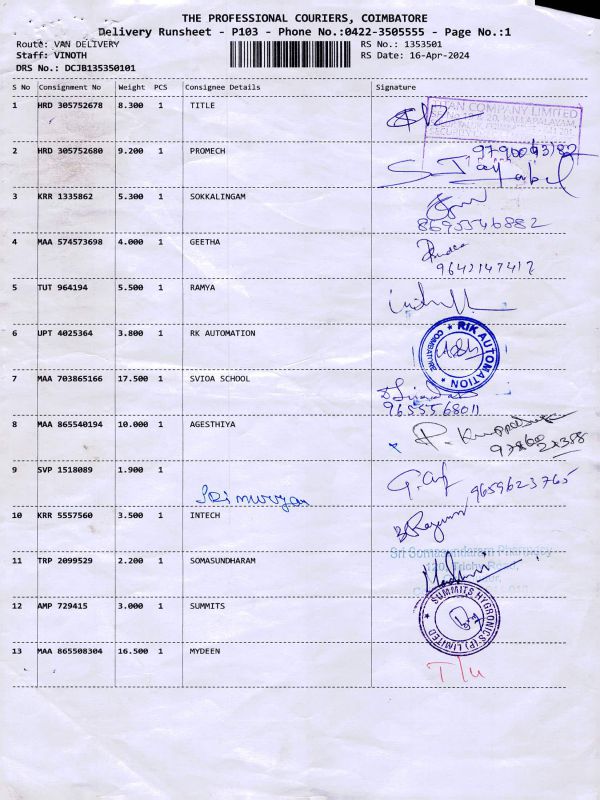 THE PROFESSIONAL COURIERS, COIMBATORE
Delivery Runsheet - P103 - Phone No.:0422-3505555 - Page No.:1
Route: VAN DELIVERY RS No.: 1353501
Staff: VINOTH RS Date: 16-Apr-2024
DRS No.: DCJB135350101
S No Consignment No Weight PCS Consignee Details Signature
1 HRD 305752678 8.300 1 TITLE
TITAN COMPANY LIMITED
2 HRD 305752680 9.200 1 PROMECH
3 KRR 1335862 5.300 1 SOKKALINGAM
8695546882
4 MAA 574573698 4.000 1 GEETHA
9642147412
5 TUT 964194 5.500 1 RAMYA
6 UPT 4025364 3.800 1 RK AUTOMATION
RIK AUTOMATION
COIMBATORE
7 MAA 703865166 17.500 1 SVIOA SCHOOL
9655568011
8 MAA 865540194 10.000 1 AGESTHIYA
9 SVP 1518089 1.900 1
Sri murugan
9659623765
10 KRR 5557560 3.500 1 INTECH
Sri Somasundaram Pharmacy
11 TRP 2099529 2.200 1 SOMASUNDHARAM
120, Trichy Road
12 AMP 729415 3.000 1 SUMMITS
SUMMITS HYGRONICS (P) LIMITED
13 MAA 865508304 16.500 1 MYDEEN
T/u